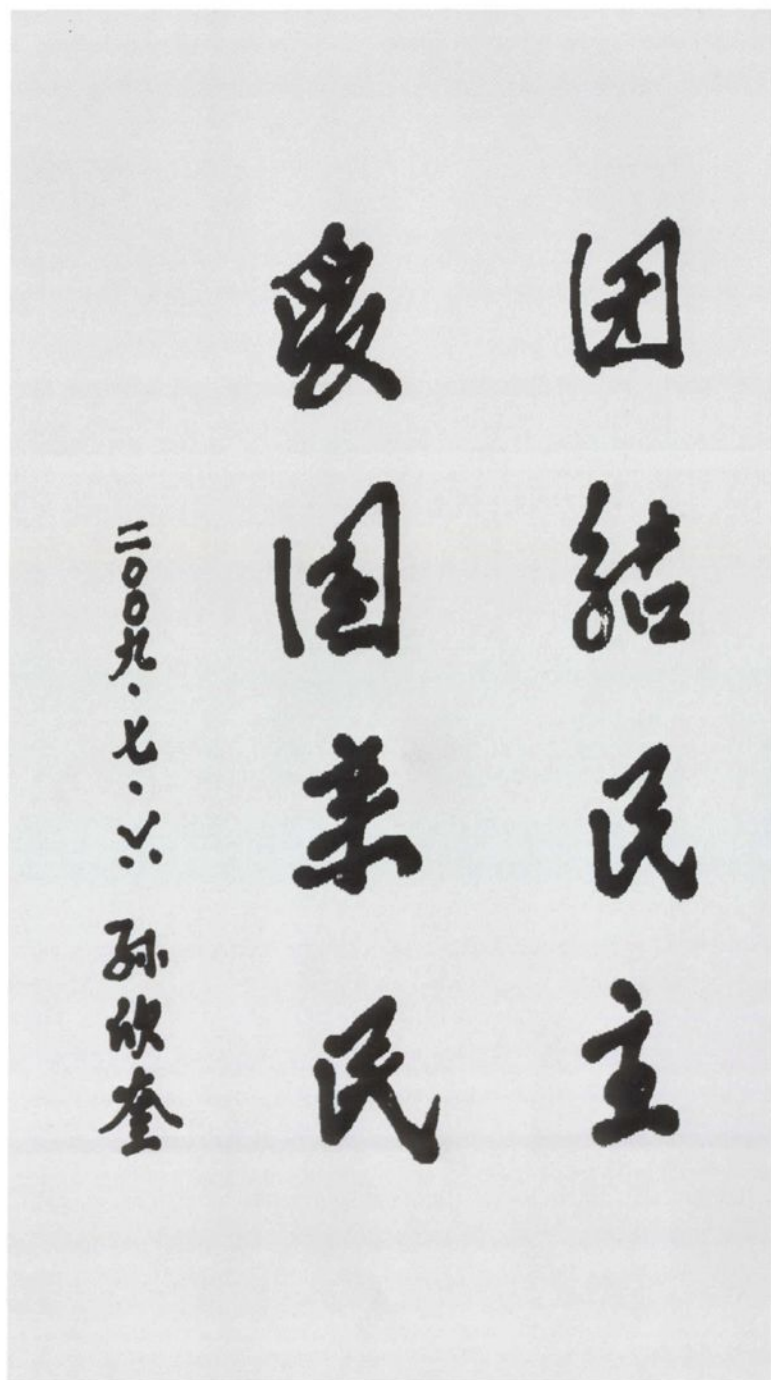 团结民主
爱国来民
二〇〇九·七·六 孙欣奎